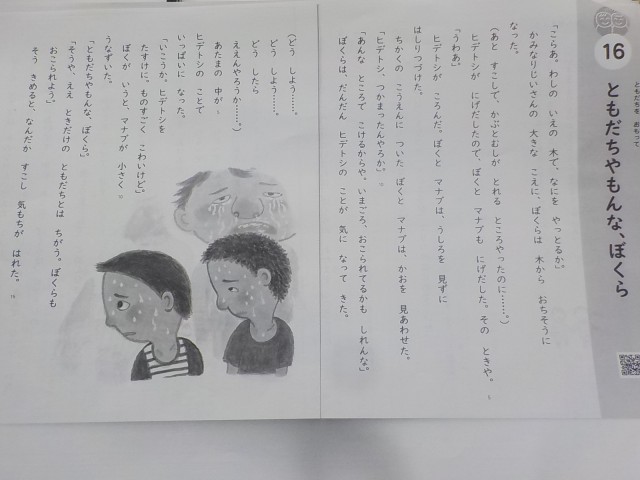 16
ともだちを おもって
ともだちやもんな、ぼくら
「こらあ、わしの いえの 木で、なにを やっとるか。」
かみなりじいさんの 大きな こえに、ぼくらは 木から おちそうに
なった。
(あと すこしで、かぶとむしが とれる ところやったのに……。)
ヒデトシが にげだしたので、ぼくと マナブも にげだした。その ときや。
「うわあ。」
ヒデトシが ころんだ。ぼくと マナブは、うしろを 見ずに
はしりつづけた。
ちかくの こうえんに ついた ぼくと マナブは、かおを 見あわせた。
「ヒデトシ、つかまったんやろか。」
「あんな ところで こけるからや。いまごろ、おこられてるかも しれんな。」
ぼくらは、だんだん ヒデトシの ことが 気に なって きた。
(どう しよう……。
どう しよう……。
どう したら
ええんやろうか……。)
あたまの 中が
ヒデトシの ことで
いっぱいに なった。
「いこうか。ヒデトシを
たすけに。ものすごく こわいけど。」
ぼくが いうと、マナブが 小さく
うなずいた。
「ともだちやもんな、ぼくら。」
「そうや、ええ ときだけの ともだちとは ちがう。ぼくらも
おこられよう。」
そう きめると、なんだか すこし 気もちが はれた。